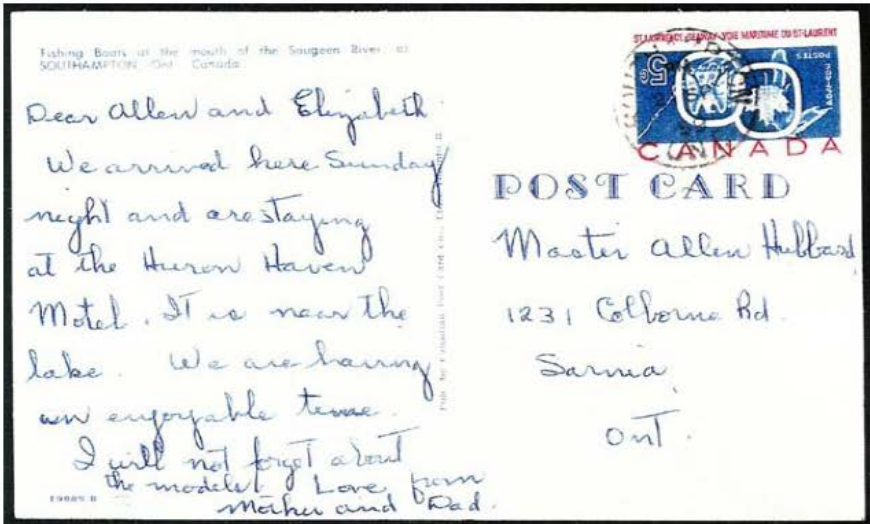 Fishing Boats at the mouth of the Saugeen River, at
SOUTHAMPTON, Ont. Canada
Dear Allen and Elizabeth
We arrived here Sunday
night and are staying
at the Huron Haven
Motel. It is near the
lake. We are having
an enjoyable time.
I will not forget about
the models. Love from
Mother and Dad.
Pub. by Canadian Post Card Co.,
ST. LAWRENCE SEAWAY VOIE MARITIME DU ST-LAURENT
POSTES
5¢
CANADA
SOUTHAMPTON
POST CARD
Master Allen Hubbard
1231 Colborne Rd.
Sarnia,
Ont.